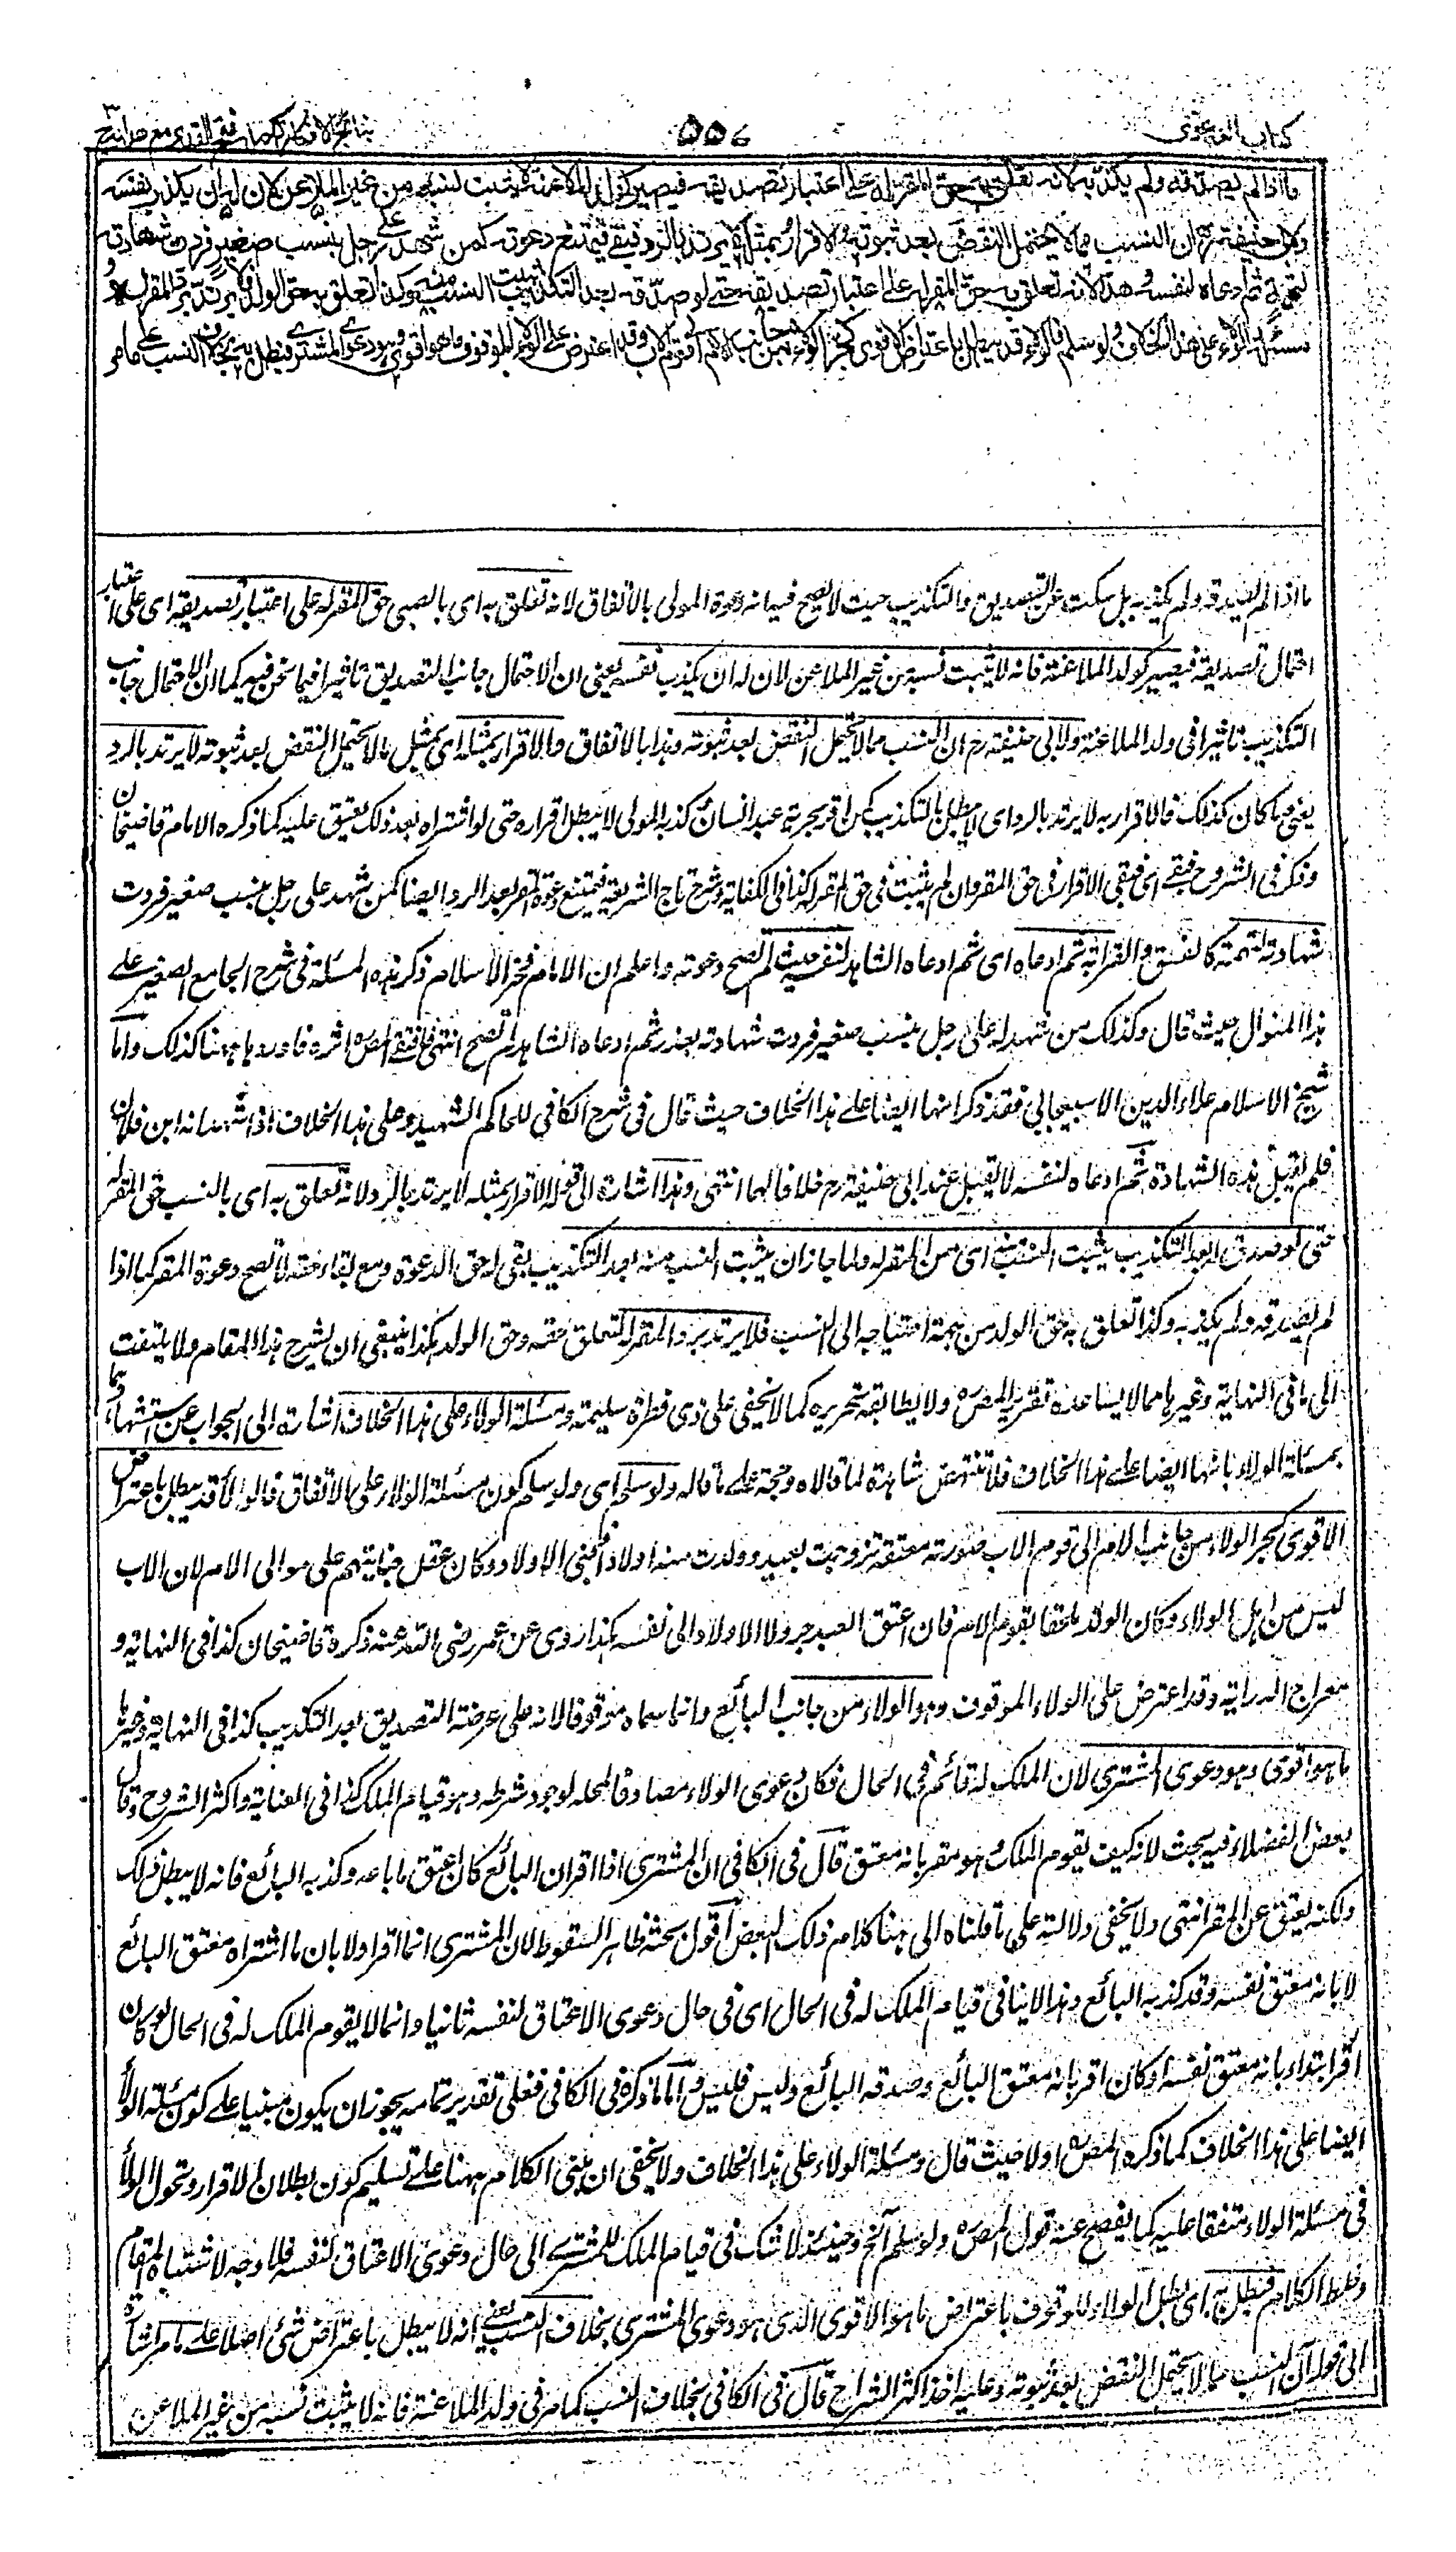 كتاب الدعوى
٥٥٧
نتائج الافكار تكملة فتح القدير مع هداية ج ٣
ما اذا لم يصدقه ولم يكذبه لانه تعلق به حق المقر له على اعتبار تصديقه فيصير كولد الملاعنة لا يثبت نسبه من غير الملاعن لان له ان يكذب نفسه
ولابي حنيفة رح ان النسب مما لا يحتمل النقض بعد ثبوته والاقرار بمثله لا يرتد بالرد فبقي فتمتنع دعوته كمن شهد على رجل بنسب صغير فردت شهادته
لتهمة ثم ادعاه لنفسه وهذا لانه تعلق به حق المقر له على اعتبار تصديقه حتى لو صدقه بعد التكذيب يثبت النسب منه وكذا تعلق به حق الولد فلا يرتد برد المقر له و
مسئلة الولاء على هذا الخلاف ولو سلم فالولاء قد يبطل باعتراض الاقوى كجر الولاء من جانب الام الى قوم الاب وقد اعترض على الولاء الموقوف ما هو اقوى وهو دعوى المشترى فيبطل به بخلاف النسب على ما مر
ما اذا لم يصدقه ولم يكذبه بل سكت عن التصديق والتكذيب حيث لا يصح فيهما نه دعوة المولى بالاتفاق لانه تعلق به اى بالصبى حق المقر له على اعتبار تصديقه اى على اعتبار
احتمال تصديقه فيصير كولد الملاعنة فانه لا يثبت نسبه من غير الملاعن لان له ان يكذب نفسه يعنى ان الاحتمال جانب التصديق تاثيرا فيما نحن فيه كما ان لاحتمال جانب
التكذيب تاثيرا فى ولد الملاعنة ولابى حنيفة رح ان النسب مما لا يحتمل النقض بعد ثبوته وهذا بالاتفاق والاقرار بمثله اى بمثل ما لا يحتمل النقض بعد ثبوته لا يرتد بالرد
يعنى وما كان كذلك فالاقرار به لا يرتد بالرد اى لا يبطل بالتكذيب كمن اقر بحرية عبد انسان فكذبه المولى لا يبطل اقراره حتى لو اشتراه بعد ذلك يعتق عليه كما ذكره الامام قاضيخان
وذكر فى الشروح فبقى اى فبقى الاقرار فى حق المقر وان لم يثبت فى حق المقر له كذا فى الكفاية وشرح تاج الشريعة فتمتنع دعوة المقر بعد الرد ايضا كمن شهد على رجل بنسب صغير فردت
شهادته لتهمة كالفسق والقرابة ثم ادعاه اى ثم ادعاه الشاهد لنفسه حيث لم تصح دعوته واعلم ان الامام فخر الاسلام ذكر هذه المسئلة فى شرح الجامع الصغير على
هذا المنوال حيث قال وكذلك من شهد له على رجل بنسب صغير فردت شهادته بعذر ثم ادعاه الشاهد لم تصح انتهى فاقتفى المص اثره فاوردها ههنا كذلك واما
شيخ الاسلام علاء الدين الاسبيجابى فقد ذكر انها ايضا على هذا الخلاف حيث قال فى شرح الكافى للحاكم الشهيد وعلى هذا الخلاف اذا شهد انه ابن فلان
فلم تقبل هذه الشهادة ثم ادعاه لنفسه لا يقبل عند ابى حنيفة رح خلافا لهما انتهى وهذا اشارة الى قوله الاقرار بمثله لا يرتد بالرد لانه تعلق به اى بالنسب حق المقر له
حتى لو صدقه بعد التكذيب يثبت النسب منه اى من المقر له ولما جاز ان يثبت النسب منه بعد التكذيب بقى له حق الدعوة ومع بقاء حقه لا تصح دعوة المقر كما اذا
لم يصدقه ولم يكذبه وكذا تعلق به حق الولد من جهة احتياجه الى النسب فلا يرتد برد المقر له لتعلق حقه وحق الولد هكذا ينبغى ان يشرح هذا المقام ولا يلتفت
الى ما فى النهاية وغيرها مما لا يساعده تقرير المص ولا يطابقه تحريره كما لا يخفى على ذى فطرة سليمة ومسئلة الولاء على هذا الخلاف اشارة الى الجواب عن استشهادهما
بمسئلة الولاء بانها ايضا على هذا الخلاف فلا تنتهض شاهدة لما قالاه وحجة على ما قاله ولو سلم اى ولو سلم كون مسئلة الولاء على الاتفاق فالولاء قد يبطل باعتراض
الاقوى كجر الولاء من جانب الام الى قوم الاب صورته معتقة تزوجت بعبد وولدت منه اولادا فجنى الاولاد وكان عقل جنايتهم على موالى الام لان الاب
ليس من اهل الولاء وكان الولد ملحقا بقوم الام فان اعتق العبد جر ولاء الاولاد الى نفسه هكذا روى عن عمر رضى الله عنه ذكره قاضيخان كذا فى النهاية و
معراج الدراية وقد اعترض على الولاء الموقوف وهو الولاء من جانب البائع وانما سماه موقوفا لانه على عرضة التصديق بعد التكذيب كذا فى النهاية وغيرها
ما هو اقوى وهو دعوى المشترى لان الملك له قائم فى الحال فكان دعوى الولاء مصادفا لمحله لوجود شرطه وهو قيام الملك كذا فى العناية واكثر الشروح وقال
بعض الفضلاء فيه بحث لانه كيف يقوم الملك وهو مقر بانه معتق قال فى الكافى ان المشترى اذا اقر ان البائع كان اعتق ما باعه وكذبه البائع فانه لا يبطل ذلك
ولكنه يعتق عن المقر انتهى ولا يخفى دلالته على ما قلناه الى هنا كلام ذلك البعض اقول بحثه ظاهر السقوط لان المشترى انما اقر اولا بان ما اشتراه معتق البائع
لا بانه معتق نفسه وقد كذبه البائع وهذا لا ينافى قيام الملك له فى الحال اى فى حال دعوى الاعتاق لنفسه ثانيا وانما لا يقوم الملك له فى الحال لو كان
اقر ابتداء بانه معتق نفسه او كان اقر بانه معتق البائع وصدقه البائع وليس فليس واما ما ذكره فى الكافى فعلى تقدير تمامه يجوز ان يكون مبنيا على كون مسئلة الولاء
ايضا على هذا الخلاف كما ذكره المص اولا حيث قال ومسئلة الولاء على هذا الخلاف ولا يخفى ان مبنى الكلام ههنا على تسليم كون بطلان الاقرار وتحول الولاء
فى مسئلة الولاء متفقا عليه كما يفصح عنه قول المص ولو سلم الخ وحينئذ لا شك فى قيام الملك للمشترى الى حال دعوى الاعتاق لنفسه فلا وجه لاشتباه المقام
وخلط الكلام فيبطل به اى يبطل الولاء الموقوف باعتراض ما هو الاقوى الذى هو دعوى المشترى بخلاف النسب يعنى انه لا يبطل باعتراض شئ اصلا على ما مر اشارة
الى قوله ان النسب مما لا يحتمل النقض بعد ثبوته وعليه اخذ اكثر الشراح قال فى الكافى بخلاف النسب كما مر فى ولد الملاعنة فانه لا يثبت نسبه من غير الملاعن